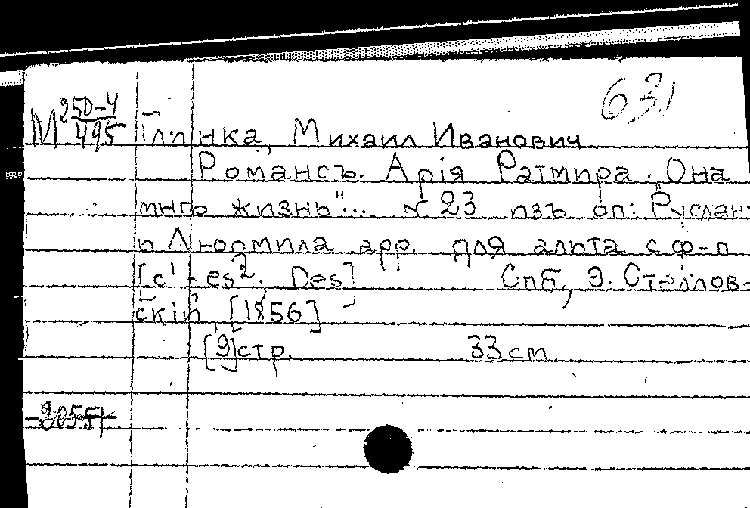 631
М 250-4/495 Глинка, Михаил Иванович
Романсъ. Арія Ратмира. „Она
мнѣ жизнь"... № 23 изъ оп: Руслан
и Людмила арр. для альта с ф-п
[c' - es². Des] Спб., Э. Стеллов-
скій, [1856]
[9]стр. 33 cm